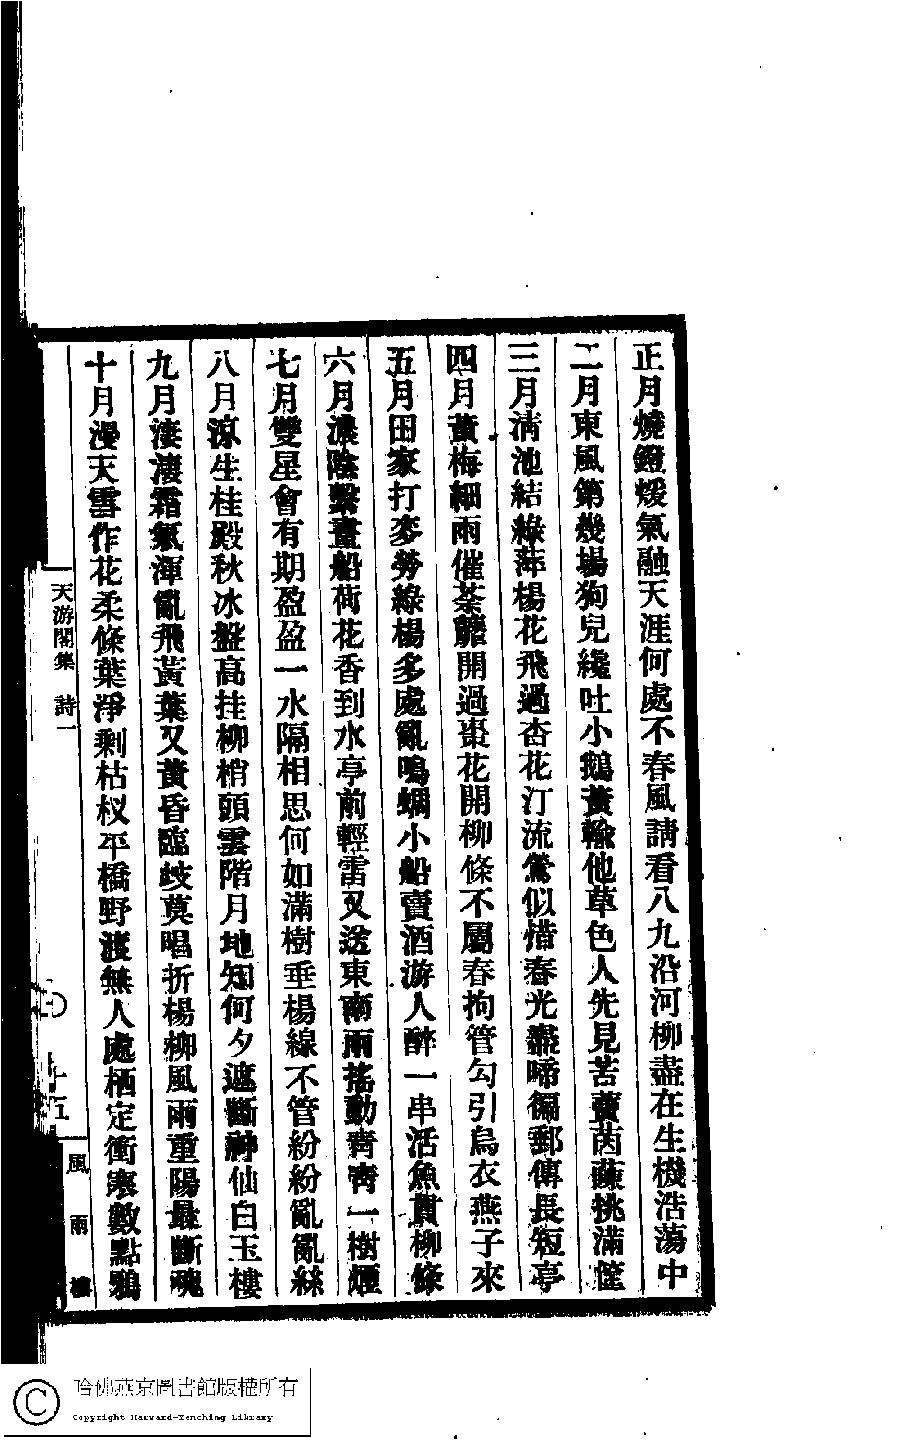 正月燒鐙煖氣融天涯何處不春風請看八九沿河柳盡在生機浩蕩中
二月東風第幾場狗兒纔吐小鵝黃輸他草色人先見苦蕒茵蔯挑滿筐
三月淸池結綠萍楊花飛過杏花汀流鶯似惜春光盡啼徧郵傳長短亭
四月黃梅細雨催荼䕷開過棗花開柳條不屬春拘管勾引烏衣燕子來
五月田家打麥勞綠楊多處亂鳴蜩小船賣酒游人醉一串活魚貫柳條
六月濃陰繫畫船荷花香到水亭前輕雷又送東南雨搖動靑靑一樹煙
七月雙星會有期盈盈一水隔相思何如滿樹垂楊線不管紛紛亂亂絲
八月涼生桂殿秋冰盤高挂柳梢頭雲階月地知何夕遮斷神仙白玉樓
九月淒淒霜氣渾亂飛黃葉又黃昏臨歧莫唱折楊柳風雨重陽最斷魂
十月漫天雪作花柔條葉淨剩枯杈平橋野渡無人處栖定衝寒數點鴉
天游閣集 詩一
風雨樓
哈佛燕京圖書館版權所有
Copyright Harvard-Yenching Library